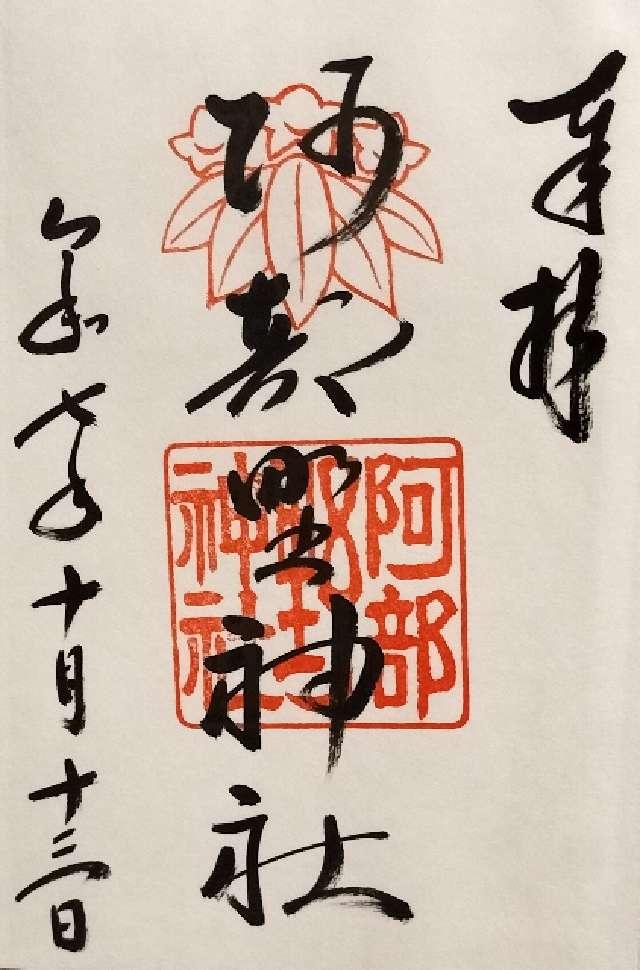 奉拝
阿部野神社
阿部
野
神社
令和七年十月十三日